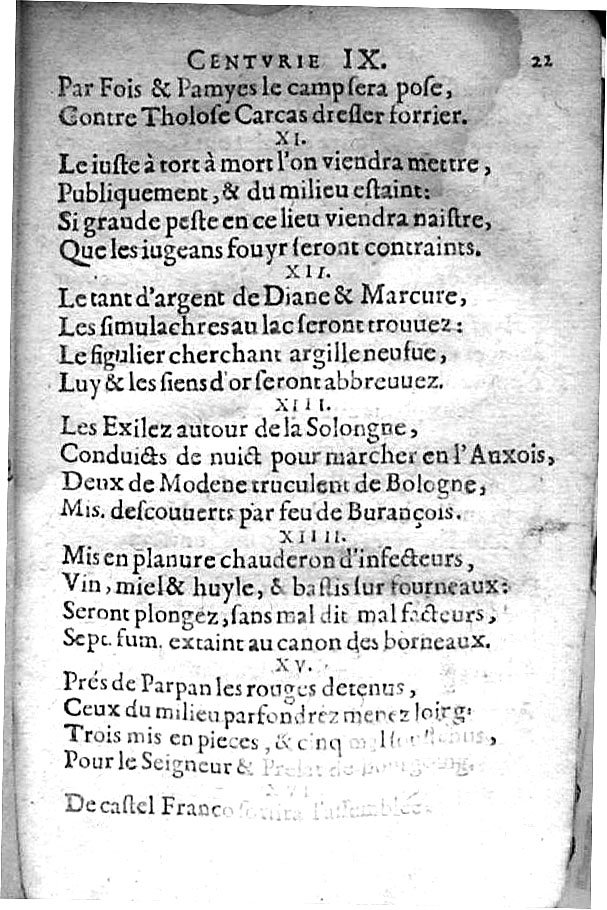 CENTVRIE IX. 22
Par Fois & Pamyes le camp ſera poſe,
Contre Tholoſe Carcas dreſſer forrier.
XI.
Le iuſte à tort à mort l'on viendra mettre,
Publiquement, & du milieu eſtaint:
Si grande peſte en ce lieu viendra naiſtre,
Que les iugeans fouyr ſeront contraints.
XII.
Le tant d'argent de Diane & Marcure,
Les ſimulachres au lac ſeront trouuez:
Le figulier cherchant argille neufue,
Luy & les ſiens d'or ſeront abbreuuez.
XIII.
Les Exilez autour de la Solongne,
Conduicts de nuict pour marcher en l'Auxois,
Deux de Modene truculent de Bologne,
Mis. deſcouuerts par feu de Burançois.
XIIII.
Mis en planure chauderon d'infecteurs,
Vin, miel & huyle, & baſtis ſur fourneaux:
Seront plongez, ſans mal dit mal facteurs,
Sept. fum. extaint au canon des borneaux.
XV.
Prés de Parpan les rouges detenus,
Ceux du milieu parfondrez menez loirg:
Trois mis en pieces, & cinq
Pour le Seigneur & Prelat de
XVI.
De caſtel Franco ſortira l'aſſemblée